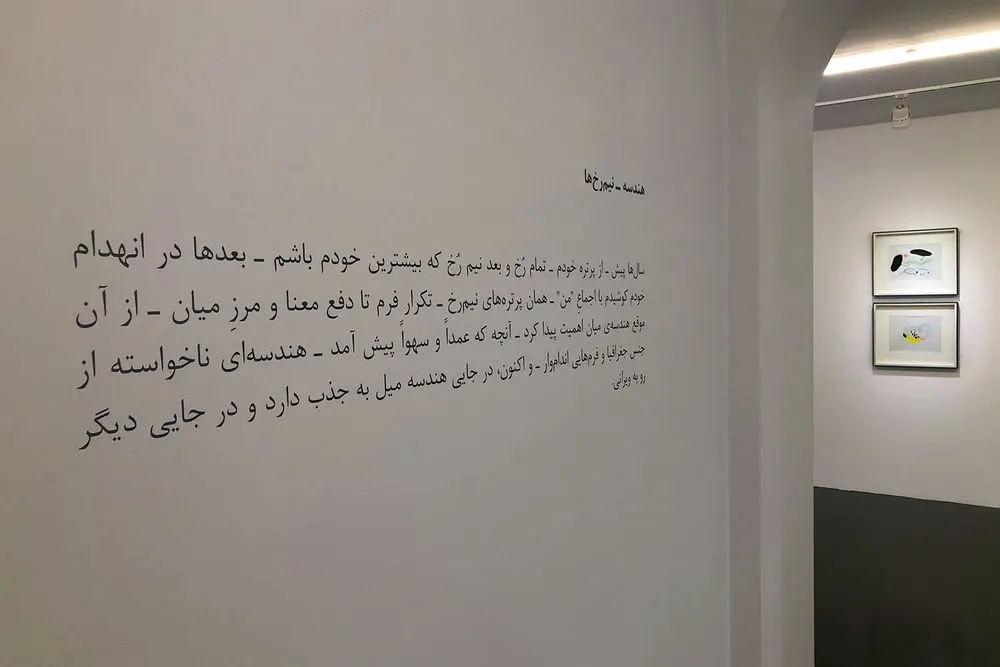 هندسه ـ نیم‌رخ‌ها
سال‌ها پیش ـ از پرتره خودم ـ تمام رُخ و بعد نیم رُخ که بیشترین خودم باشم ـ بعدها در انهدام
خودم کوشیدم با اجماعِ "من" ـ همان پرتره‌های نیم‌رخ ـ تکرار فرم تا دفع معنا و مرزِ میان ـ از آن
موقع هندسه‌ی میان اهمیت پیدا کرد ـ آنچه که عمداً و سهواً پیش آمد ـ هندسه‌ای ناخواسته از
جنس جغرافیا و فرم‌هایی اندام‌وار ـ و اکنون، در جایی هندسه میل به جذب دارد و در جایی دیگر
رو به ویرانی.